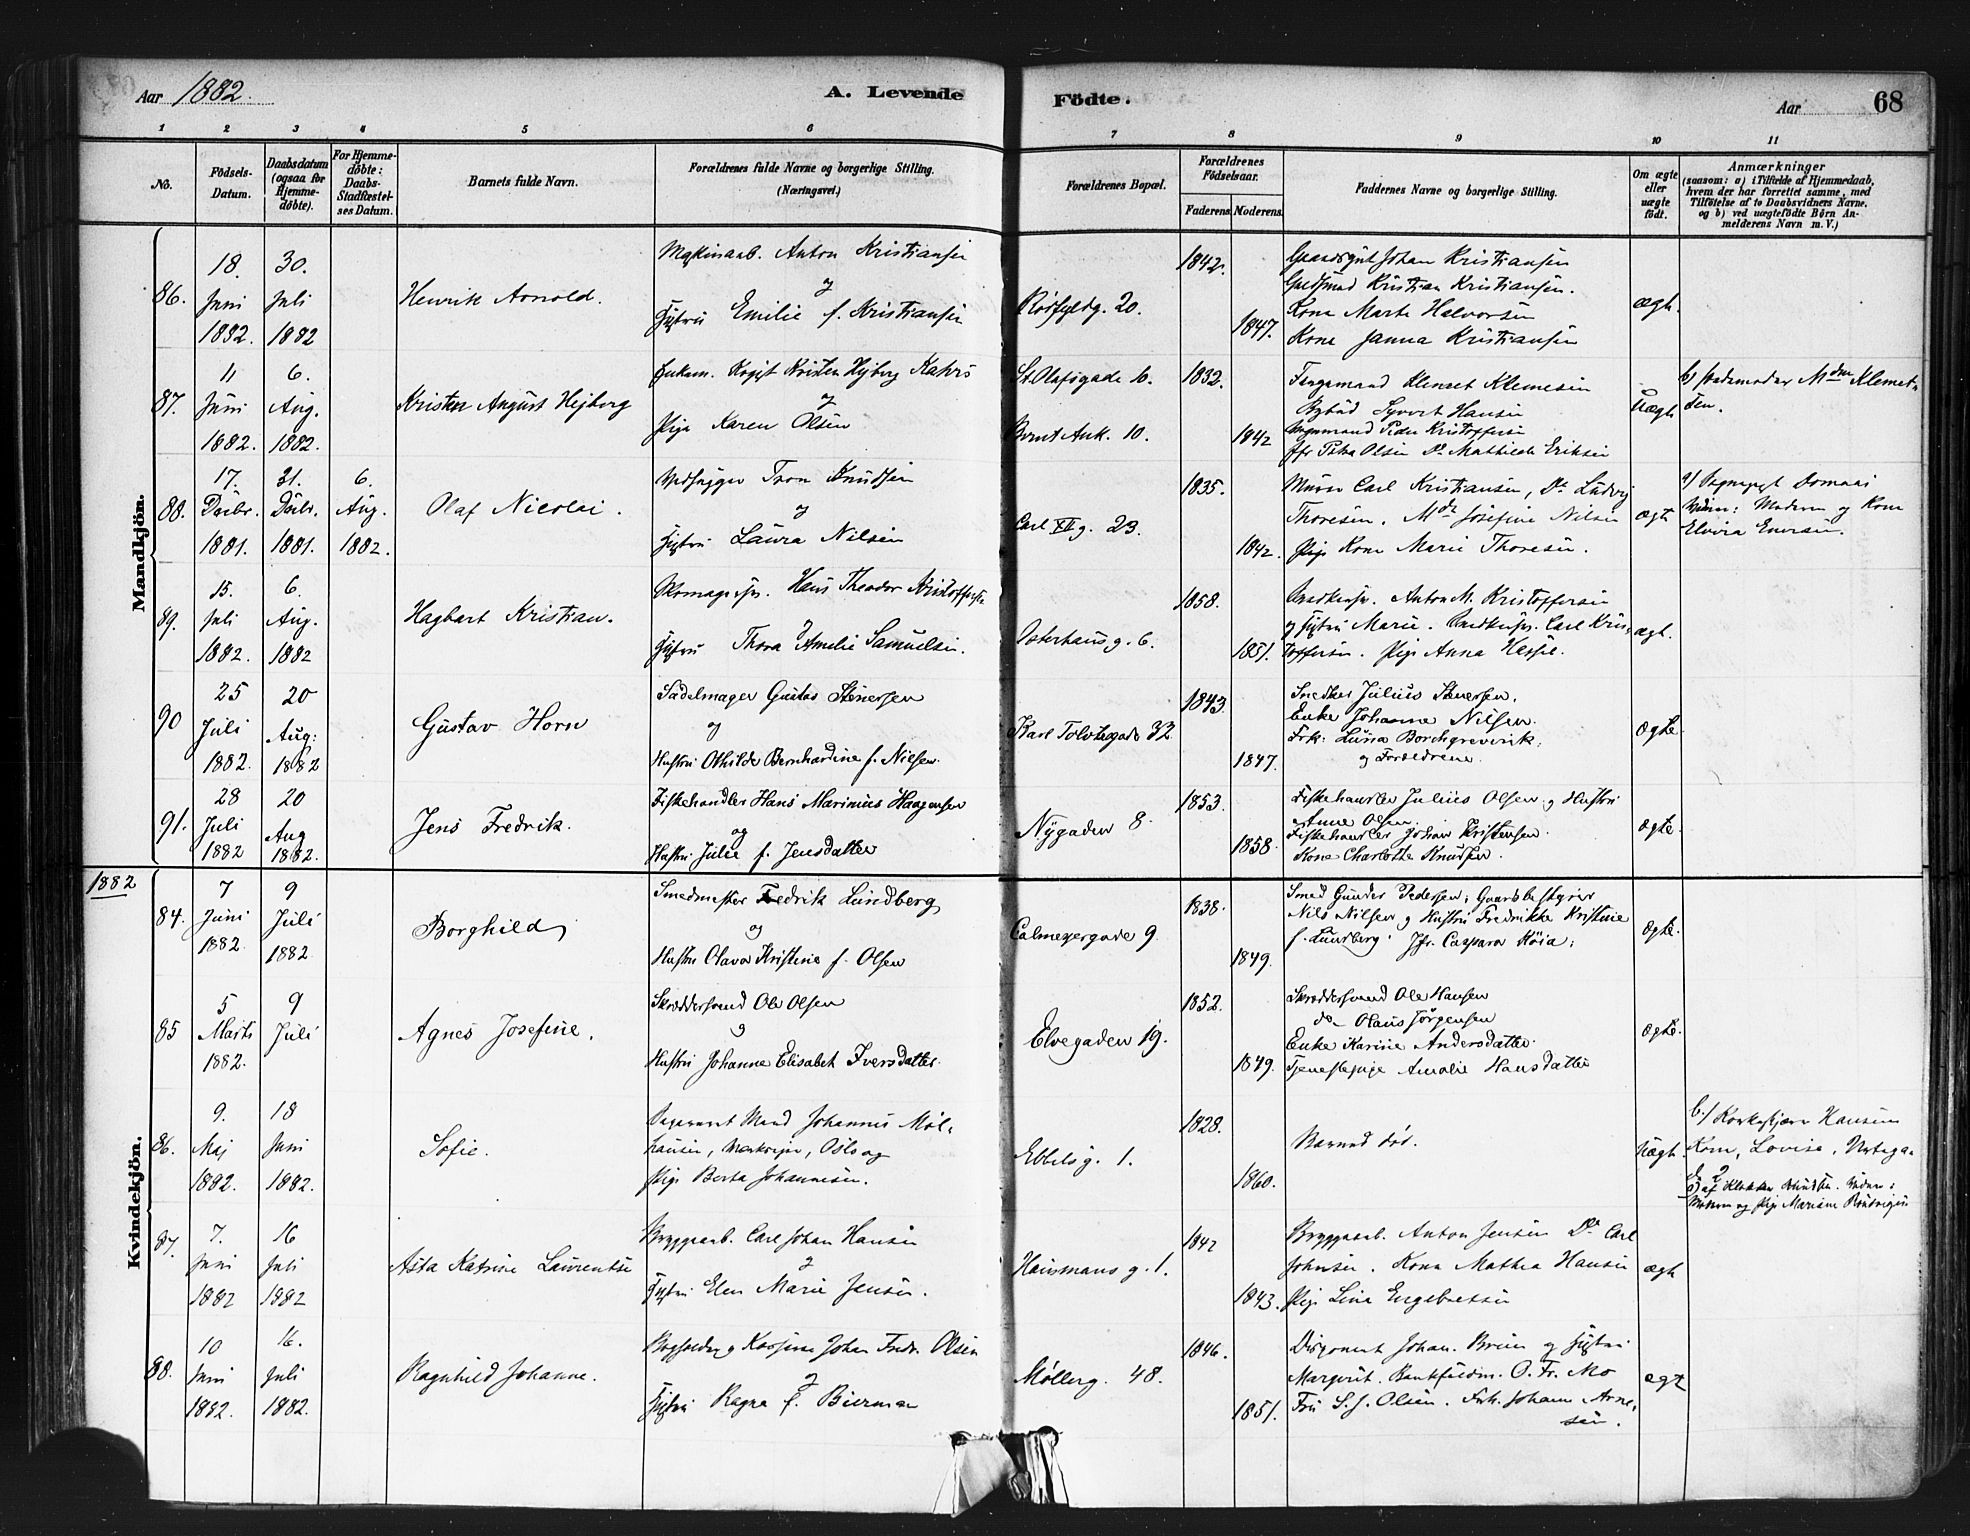 Aar 1882.
A. Levende Födte.
Aar 68
1 2 3 4 5 6 7 8 9 10 11
No.
Födsels-
Datum.
Daabsdatum
(ogsaa for
Hjemme-
döbte).
For Hjemme-
döbte:
Daabs-
Stadfæstel-
ses Datum.
Barnets fulde Navn.
Forældrenes fulde Navne og borgerlige Stilling.
(Næringsvei.)
Forældrenes Bopæl.
Forældrenes
Födselsaar.
Faderens. Moderens.
Faddernes Navne og borgerlige Stilling.
Om ægte
eller
uægte
födt.
Anmærkninger
(saasom: a) i Tilfælde af Hjemmedaab,
hvem der har forrettet samme, med
Tilföielse af to Daabsvidners Navne,
og b) ved uægtefödte Börn An-
melderens Navn m. V.)
Mandkjön.
86.
18.
Juni
1882
30.
Juli
1882
Henrik Arnold.
Anton Kristiansen
og
Hustru Emilie f. Kristiansen
20.
1842.
1847.
Johan Kristiansen
Kristian Kristiansen.
Kone Marte Halvorsen
Kone Janna Kristiansen
ægte
87.
11
Juni
1882.
6.
Aug.
1882.
Kristen August Hejborg
og
Pige Karen Olsen
St. Olafsgade 16.
Bernt Ank. 10.
1832.
1842
Syvert Hansen
Peder Kristoffersen
Jfr Petra Olsen Do Mathilde Eriksen
Uægte
88.
17.
Decbr.
1881.
31.
Decbr.
1881.
6.
Aug.
1882.
Olaf Nicolai.
Tron Knudsen
og
Hustru Laura Nilsen
Carl XII g. 23.
1835.
1842.
Murer Carl Kristiansen, Do Ludvig
Thoresen. Josefine Nilsen
Pige Kone Marie Thoresen.
ægte
Moderen og Kone
89.
15.
Juli
1882.
6.
Aug.
1882
Hagbart Kristian.
Hans Theodor Kristoffersen
og
Hustru Thora Amelie Samuelsen.
Osterhausg. 6.
1858.
1851.
Anton M. Kristoffersen
og Hustru Marie. Carl Kris-
toffersen. Pige Anna
ægte.
90
25
Juli
1882.
20
Aug:
1882
Gustav Horn
Sadelmager Gustav Stenersen
og
Hustru Othilde Bernhardine f. Nielsen.
Karl Tolvtegade 32
1843.
1847.
Snedker Julius Stenersen,
Enke Johanne Nilsen.
Frk: Luisa Borchgrevink,
og Forældrene.
ægte.
91.
28
Juli
1882
20
Aug
1882.
Jens Fredrik.
Fiskehandler Hans Marinius Haagensen
og
Hustru Julie f. Jensdatter
Nygaden 8.
1853.
1858.
Fiskehandler Julius Olsen og Hustru
Anne Olsen.
Fiskehandler Johan Kristensen.
Kone Charlotte Knudsen.
ægte.
1882
Kvindekjön.
84.
7
Juni
1882.
9
Juli
1882.
Borghild
Smedmester Fredrik Lundberg
og
Hustru Olava Kristine f. Olsen
Calmeyergade 9
1838.
1849.
Smed Gunder Pedersen; Gaardsbestyrer
Nils Nilsen og Hustru Fredrikke Kristine
f. Lundberg. Jfr. Caspara Höia;
ægte.
85
5
Marts
1882.
9
Juli
Agnes Josefine.
Skræddersvend Ole Olsen
og
Hustru Johanne Elisabet Iversdatter.
Elvegaden 19.
1852.
1849.
Skræddersvend Ole Hansen
do- Olaus Jörgensen
Enke Karine Andersdatter.
Tjenestepige Amalie Hansdatter
ægte.
86.
9.
Maj
1882.
18
Juni
1882.
Sofie.
Mand Johannes Møl-
hausen, Oslo og
Pige Berta Johannesen.
Ebbelsg. 1.
1828.
1860.
Barnet död.
Uægte.
b.) Hansens
Kone, Lovise,
87.
7.
Juni
1882
16
Juli
1882
Asta Katrine Laurentse
Bryggearb. Carl Johan Hansen
og
Hustru Elen Marie Jensen.
Hausmans g. 1.
1842
1843.
Bryggearb. Anton Jensen Do Carl
Johnsen. Kone Mathea Hansen
Pige Lina Engebretsen
ægte
88.
10
Juni
1882.
16.
Juli
1882.
Ragnhild Johanne.
Bogholder og Johan Fredr. Olsen
og
Hustru Ragna f. Bierman
Møllerg. 48.
1846.
1851.
Disponent Johan. Bruun og Hustru
Margrit. O. Fr. Mo
Fru S. J. Olsen. Frk. Johanne Arne-
sen.
ægte